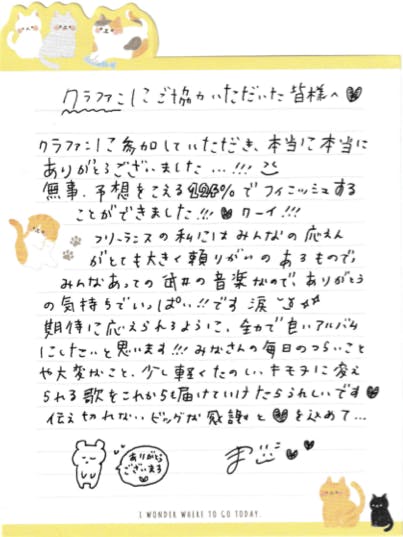 クラファンにご協力いただいた皆様へ♥
クラファンに参加していただき、本当に本当に
ありがとうございました…!!!
無事、予想をこえる124%でフィニッシュする
ことができました!!!♥ワーイ!!!
フリーランスの私にはみんなの応えん
がとても大きく頼りがいのあるもので、
みんなあっての武井の音楽なので、ありがとう
の気持ちでいっぱい!!です涙
期待に応えられるように、全力で良いアルバム
にしたいと思います!!!みなさんの毎日のつらいこと
や大変なこと、少し軽くたのしいキモチに変え
られる歌をこれからも届けていけたらうれしいです♥
伝え切れないビッグな感謝と♥を込めて…
ありがとう
ございます
I WONDER WHERE TO GO TODAY.